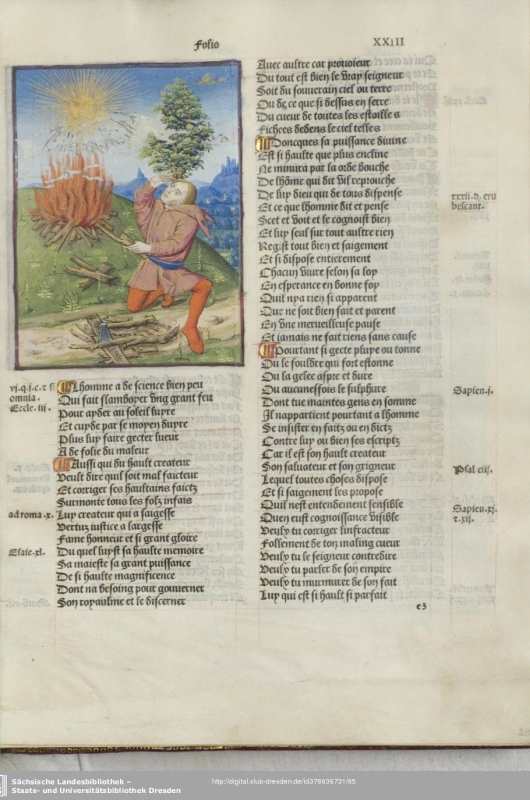 Folio
XXIII
vj.q.j.c.τ si
omnia.
Eccle. iij.
Lhomme a de science bien peu
Qui fait flamboyer vng grant feu
Pour ayder au soleil luyre
Et cuyde par se moyen duyre
Plus luy faire gecter lueur
A de folie du maleur
Aussi qui du hault createur
Veult dire quil soit mal faicteur
Et corriger ses haultains faictz
Surmonte tous les folz infais
ad roma .x.
Luy createur qui a saigesse
Vertuz iustice a largesse
Fame honneur et si grant gloire
Esaie.xl.
Du quel luyst sa haulte memoire
Sa maieste sa grant puissance
De si haulte magnificence
Dont na besoing pour gouuerner
Son royaulme et le discerner
Auec aultre car prouoieur
Du tout est bien le vray seigneur
Soit du souuerain ciel ou terre
Ou de ce que si dessus en serre
Du cueur de toutes les estoilles
Fichees dedens le ciel telles
Doncques sa puissance diuine
Est si haulte que plus encline
Ne minura par la orde bouche
De lhõme qui dit vil reprouche
xxxii.q. eru
bescant.
De luy dieu qui de tous dispense
Et ce que lhomme dit et pense
Scet et voit et le cognoist bien
Et luy seul sur tout aultre rien
Regist tout bien et saigement
Et si dispose entierement
Chacun viure selon sa loy
En esperance en bonne foy
Quil nya rien si apparent
Que ne soit bien fait et parent
En vne merueilleuse pause
Et iamais ne fait riens sans cause
Pourtant si gecte pluye ou tonne
Ou le fouldre qui fort estonne
Ou la gelee aspre et dure
Sapien.j.
Ou aucunesfois le sulphure
Dont tue maintes gens en somme
Il nappartient pourtant a lhomme
Se insister en faitz ou en dictz
Contre luy ou bien ses escriptz
Car il est son hault createur
Psal ciij.
Son saluateur et son grigneur
Lequel toutes choses dispose
Et si saigement les propose
Sapien.xj.
τ.xij.
Quil nest entendement sensible
Quen eust cognoissance visible
Veulx tu corriger linfracteur
Follement de ton maling cueur
Veulx tu le seigneur contredire
Veulx tu parler de son empire
Veulx tu murmurer de son fait
Luy qui est si hault si parfait
e3
Sächsische Landesbibliothek –
Staats- und Universitätsbibliothek Dresden
http://digital.slub-dresden.de/id378636731/65